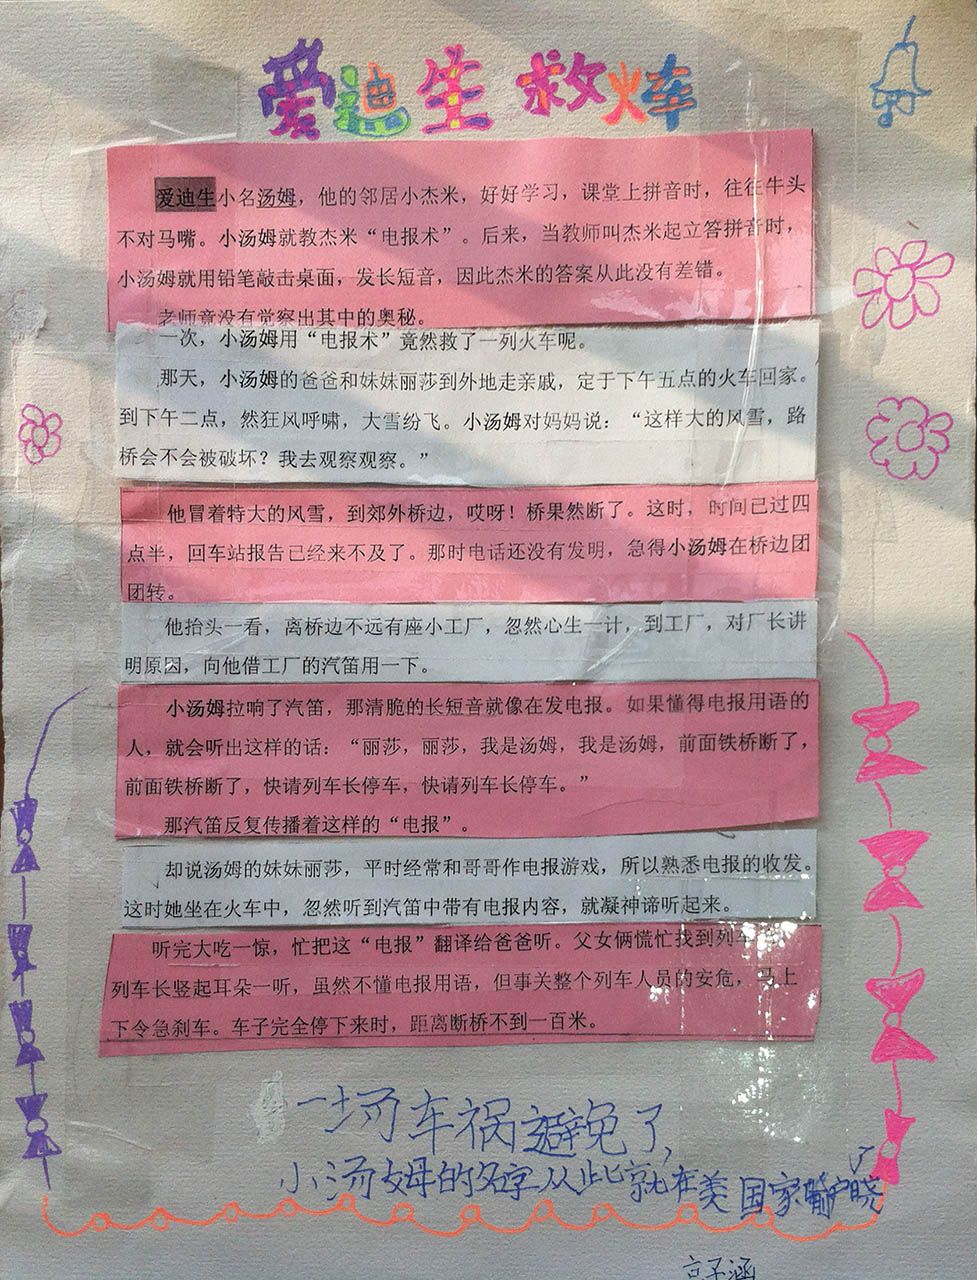 爱迪生救火车
爱迪生小名汤姆，他的邻居小杰米，好好学习，课堂上拼音时，往往牛头
不对马嘴。小汤姆就教杰米“电报术”。后来，当教师叫杰米起立答拼音时，
小汤姆就用铅笔敲击桌面，发长短音，因此杰米的答案从此没有差错。
老师竟没有觉察出其中的奥秘。
一次，小汤姆用“电报术”竟然救了一列火车呢。
那天，小汤姆的爸爸和妹妹丽莎到外地走亲戚，定于下午五点的火车回家。
到下午二点，然狂风呼啸，大雪纷飞。小汤姆对妈妈说：“这样大的风雪，路
桥会不会被破坏？我去观察观察。”
他冒着特大的风雪，到郊外桥边，哎呀！桥果然断了。这时，时间已过四
点半，回车站报告已经来不及了。那时电话还没有发明，急得小汤姆在桥边团
团转。
他抬头一看，离桥边不远有座小工厂，忽然心生一计，到工厂，对厂长讲
明原因，向他借工厂的汽笛用一下。
小汤姆拉响了汽笛，那清脆的长短音就像在发电报。如果懂得电报用语的
人，就会听出这样的话：“丽莎，丽莎，我是汤姆，我是汤姆，前面铁桥断了，
前面铁桥断了，快请列车长停车，快请列车长停车。”
那汽笛反复传播着这样的“电报”。
却说汤姆的妹妹丽莎，平时经常和哥哥作电报游戏，所以熟悉电报的收发。
这时她坐在火车中，忽然听到汽笛中带有电报内容，就凝神谛听起来。
听完大吃一惊，忙把这“电报”翻译给爸爸听。父女俩慌忙找到列车
列车长竖起耳朵一听，虽然不懂电报用语，但事关整个列车人员的安危，马上
下令急刹车。车子完全停下来时，距离断桥不到一百米。
一场车祸避免了，
小汤姆的名字从此就在美国家喻户晓
子涵